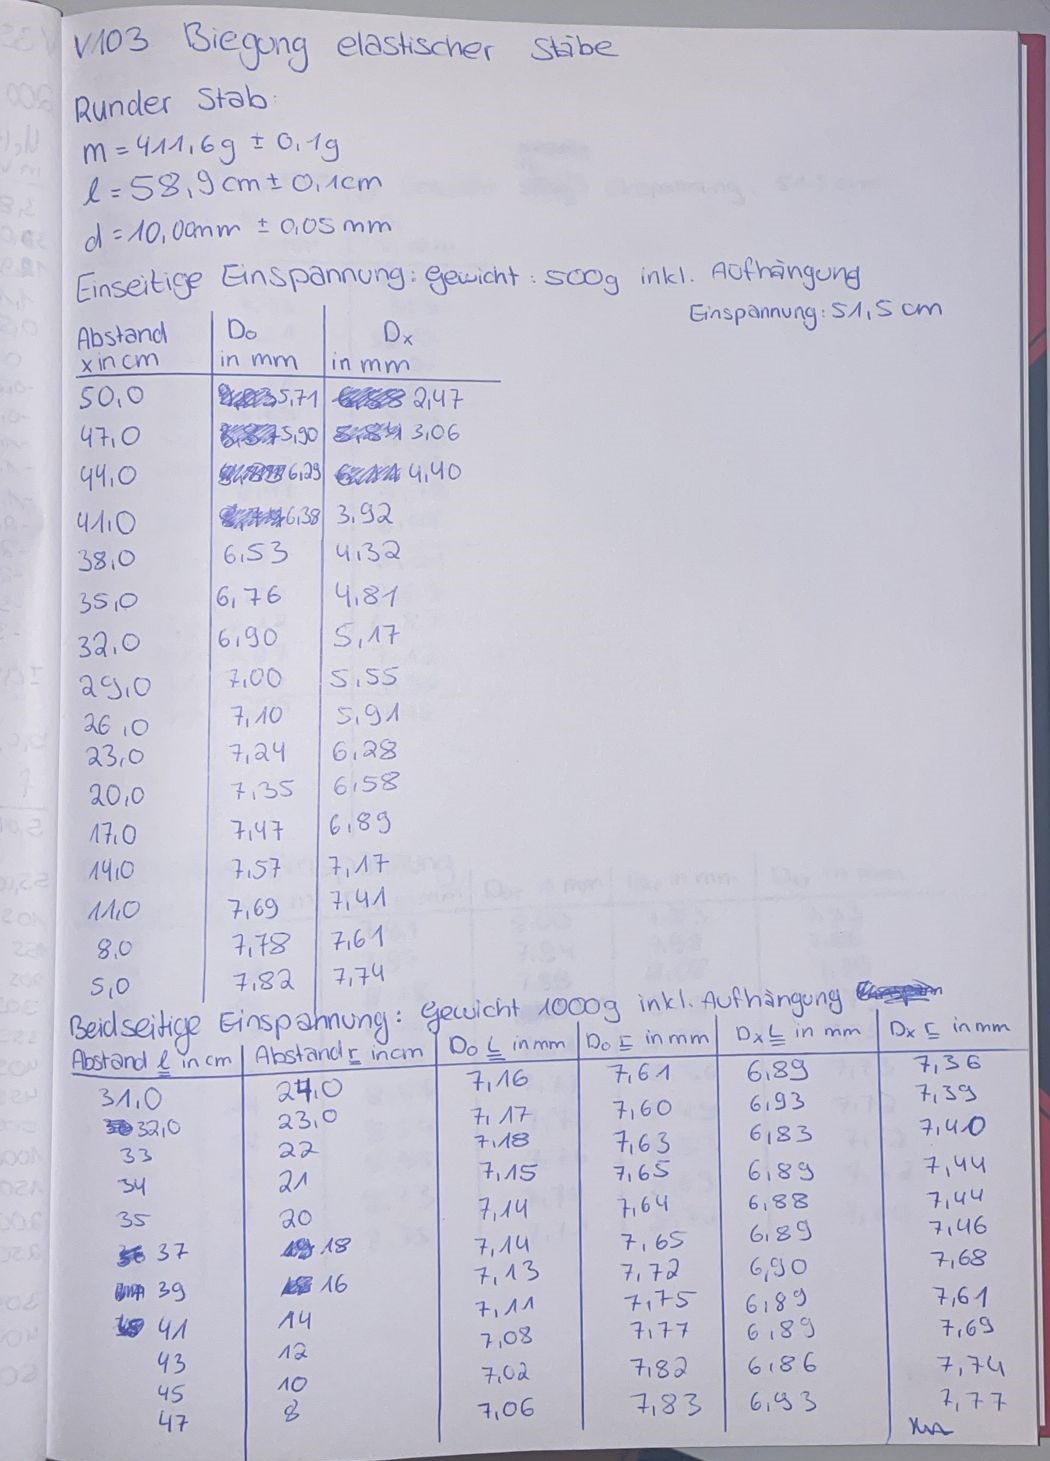 V103 Biegung elastischer Stäbe
Runder Stab:
m = 411,6g ± 0,1g
l = 58,9 cm ± 0,1cm
d = 10,00mm ± 0,05 mm
Einseitige Einspannung: Gewicht: 500g inkl. Aufhängung
Einspannung: 51,5 cm
Abstand D₀ Dₓ
x in cm in mm in mm
50,0 5,71 2,47
47,0 5,90 3,06
44,0 6,29 4,40
41,0 6,38 3,92
38,0 6,53 4,32
35,0 6,76 4,81
32,0 6,90 5,17
29,0 7,00 5,55
26,0 7,10 5,91
23,0 7,24 6,28
20,0 7,35 6,58
17,0 7,47 6,89
14,0 7,57 7,17
11,0 7,69 7,41
8,0 7,78 7,61
5,0 7,82 7,74
Beidseitige Einspannung: Gewicht 1000g inkl. Aufhängung
Abstand l in cm Abstand r in cm D₀ l in mm D₀ r in mm Dₓ l in mm Dₓ r in mm
31,0 24,0 7,16 7,61 6,89 7,36
32,0 23,0 7,17 7,60 6,93 7,39
33 22 7,18 7,63 6,83 7,40
34 21 7,15 7,65 6,89 7,44
35 20 7,14 7,64 6,88 7,44
37 18 7,14 7,65 6,89 7,46
39 16 7,13 7,72 6,90 7,68
41 14 7,11 7,75 6,89 7,61
43 12 7,08 7,77 6,89 7,69
45 10 7,02 7,82 6,86 7,74
47 8 7,06 7,83 6,93 7,77